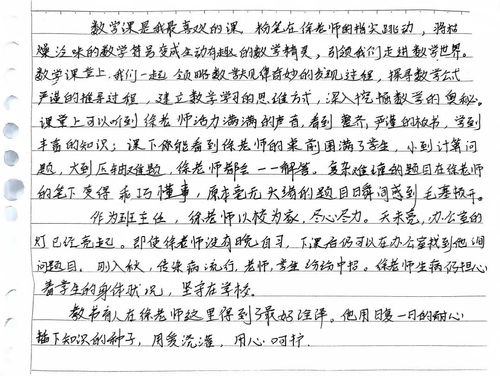 数学课是我最喜欢的课。粉笔在徐老师的指尖跳动，将枯
燥泛味的数学符号变成生动有趣的数学精灵，引领我们走进数学世界。
数学课堂上，我们一起领略数学公式奇妙的发现过程，探寻数学公式
严谨的推导过程，建立数学学习的思维方式，深入挖掘数学的奥秘。
课堂上可以听到徐老师活力满满的声音，看到整齐、严谨的板书，学到
丰富的知识；课下你能看到徐老师的桌前围满了学生，小到计算问
题，大到压轴难题，徐老师都会一一解答。复杂难缠的题目在徐老师
的笔下变得乖巧懂事，原本毫无头绪的题目瞬间感到毛塞顿开。
作为班主任，徐老师以校为家，尽心尽力。天未亮，办公室的
灯已经亮起。即使徐老师没有晚自习，下课后仍可以在办公室找到他询
问题目。刚入秋，传染病流行，老师、学生纷纷中招。徐老师生病仍担心
着学生的身体状况，坚守在学校。
教书育人在徐老师这里得到了最好诠释。他用日复一日的耐心
播下知识的种子，用爱浇灌，用心呵护。